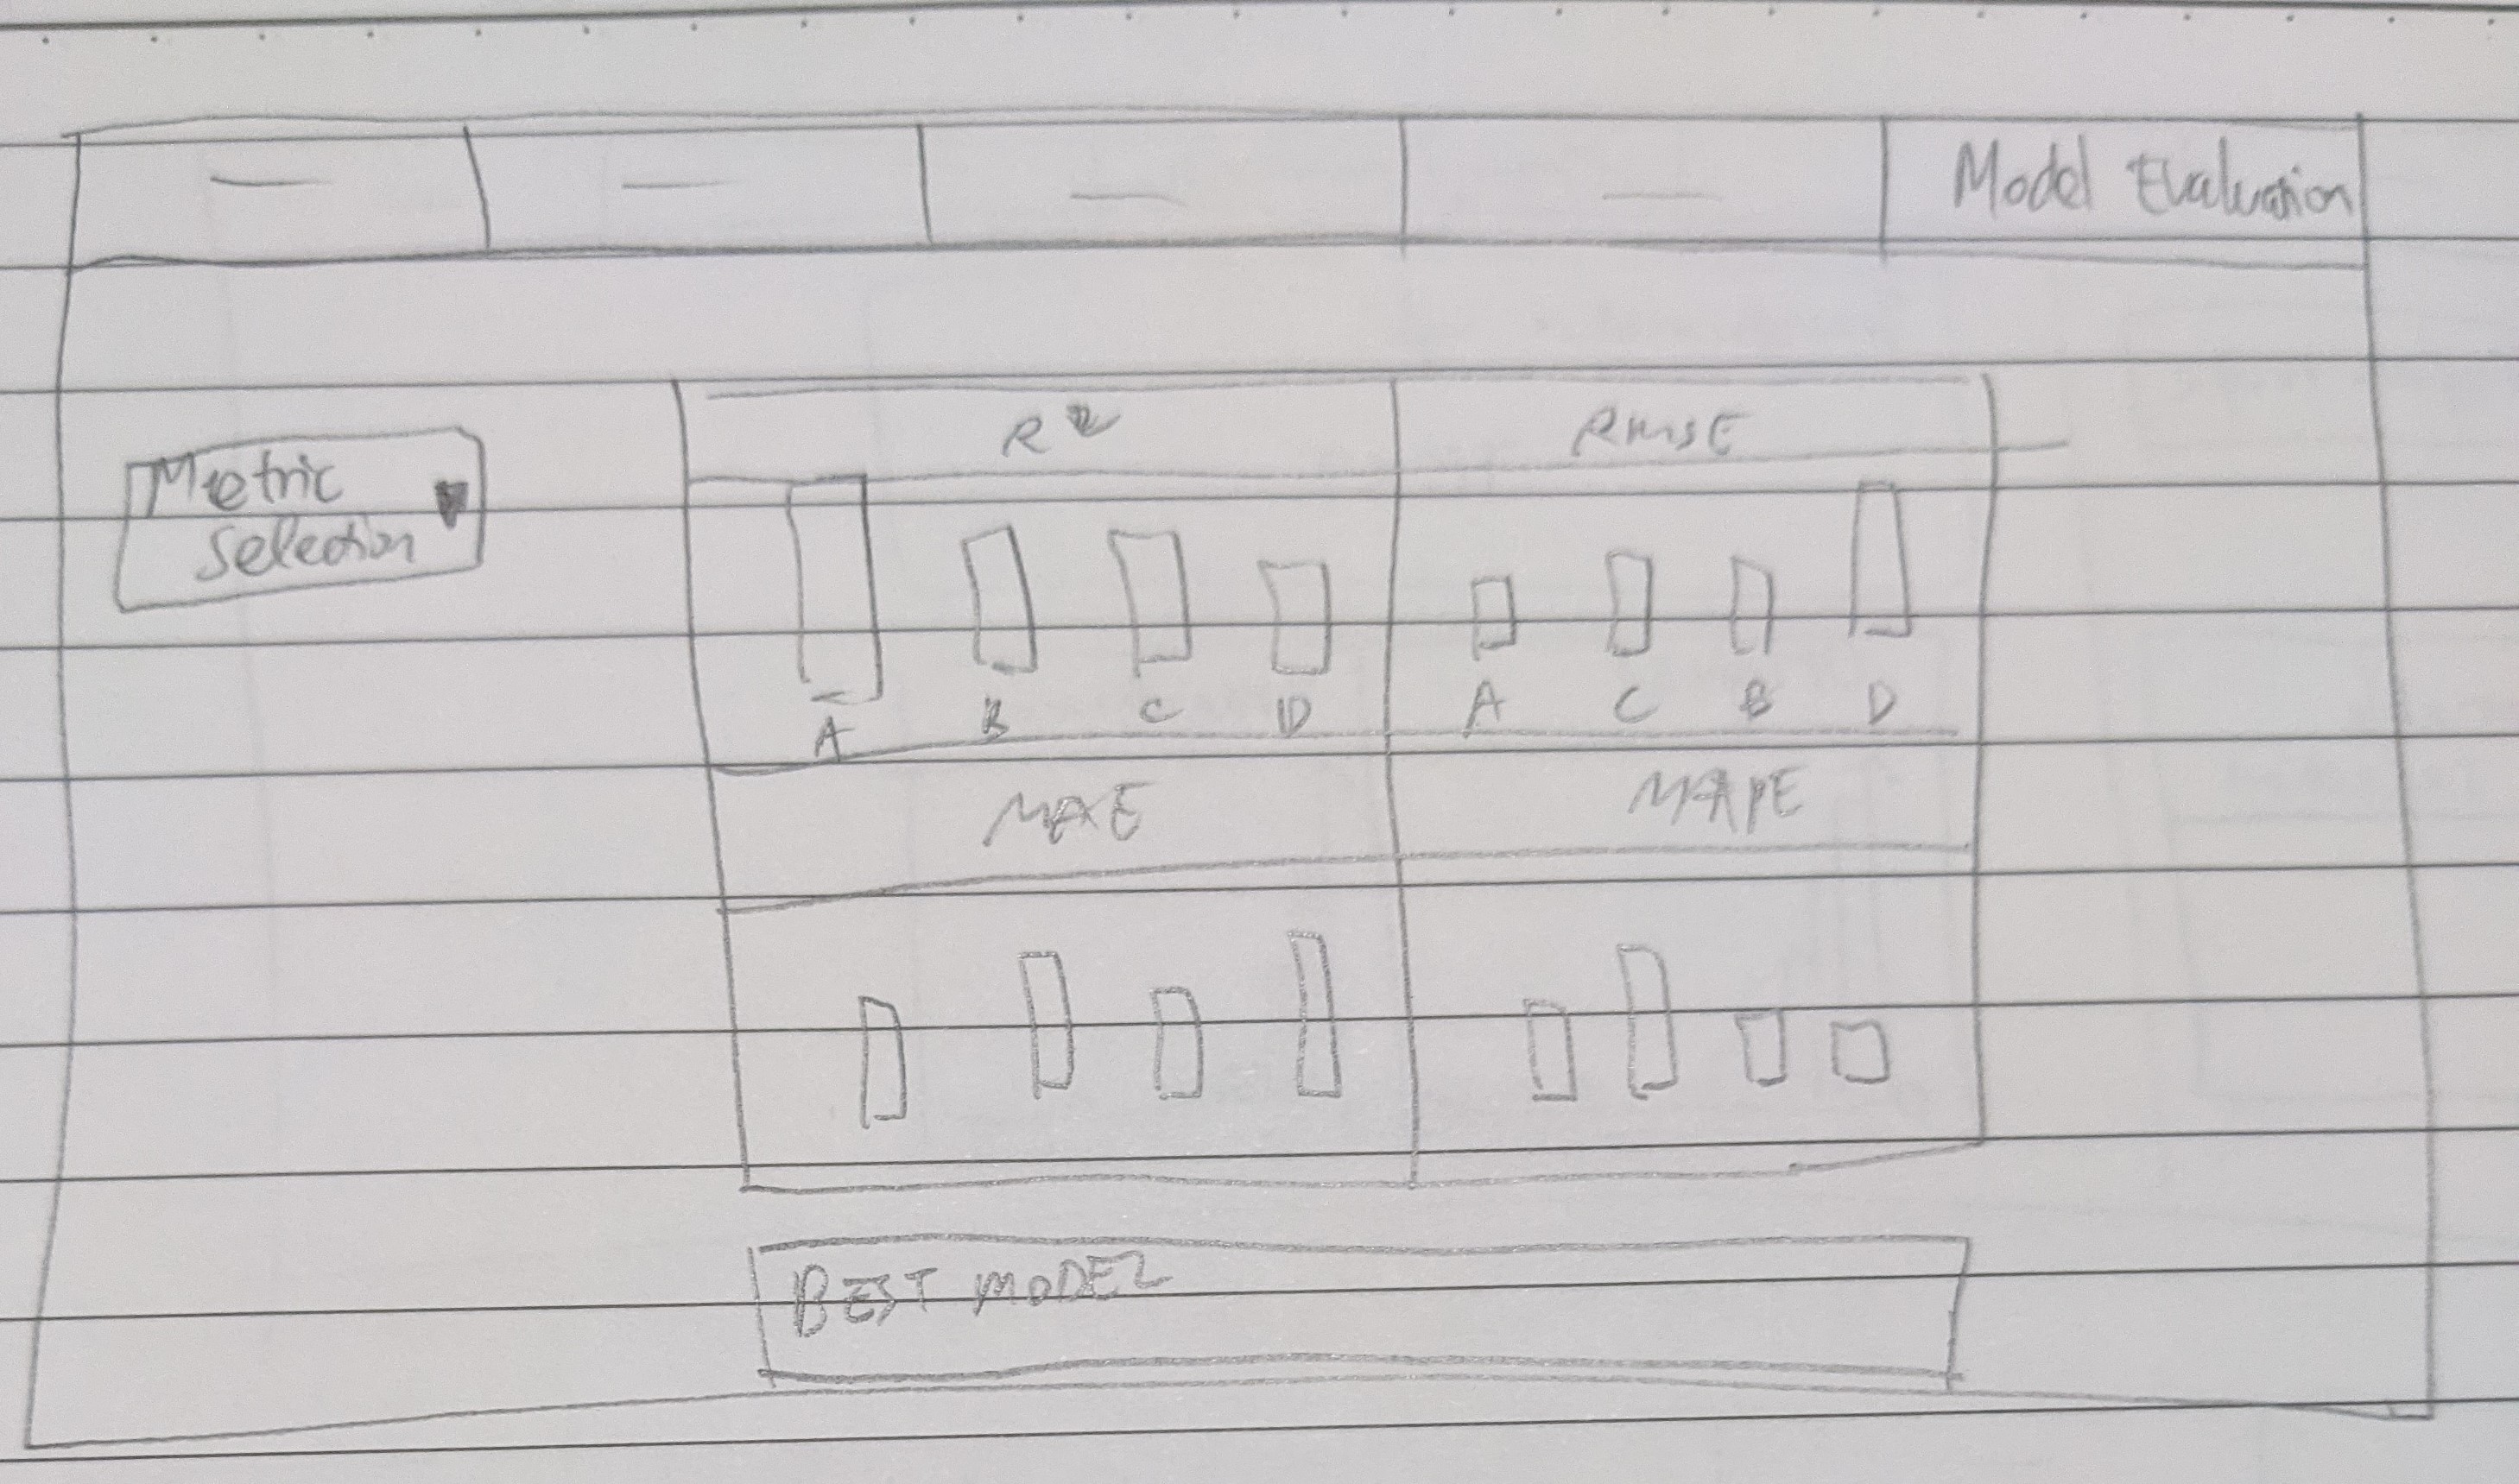 Model Evaluation
Metric
Selection
R²
RMSE
A B C D
A C B D
MAE
MAPE
BEST MODEL